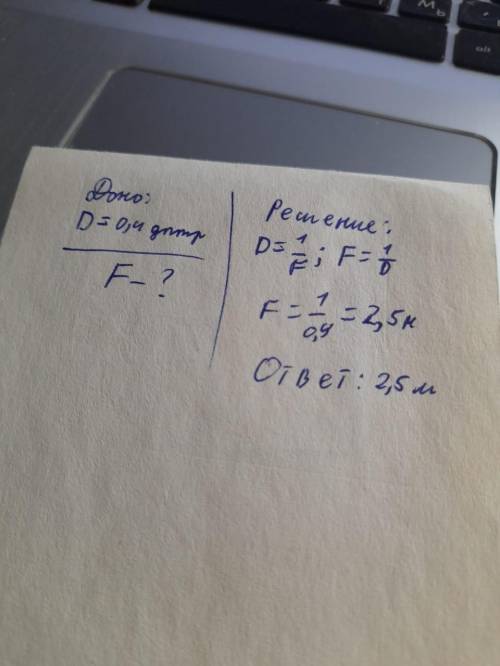 Дано:
D = 0,4 дптр
F - ?
Решение:
D = 1/F ; F = 1/D
F = 1/0,4 = 2,5 м
Ответ: 2,5 м